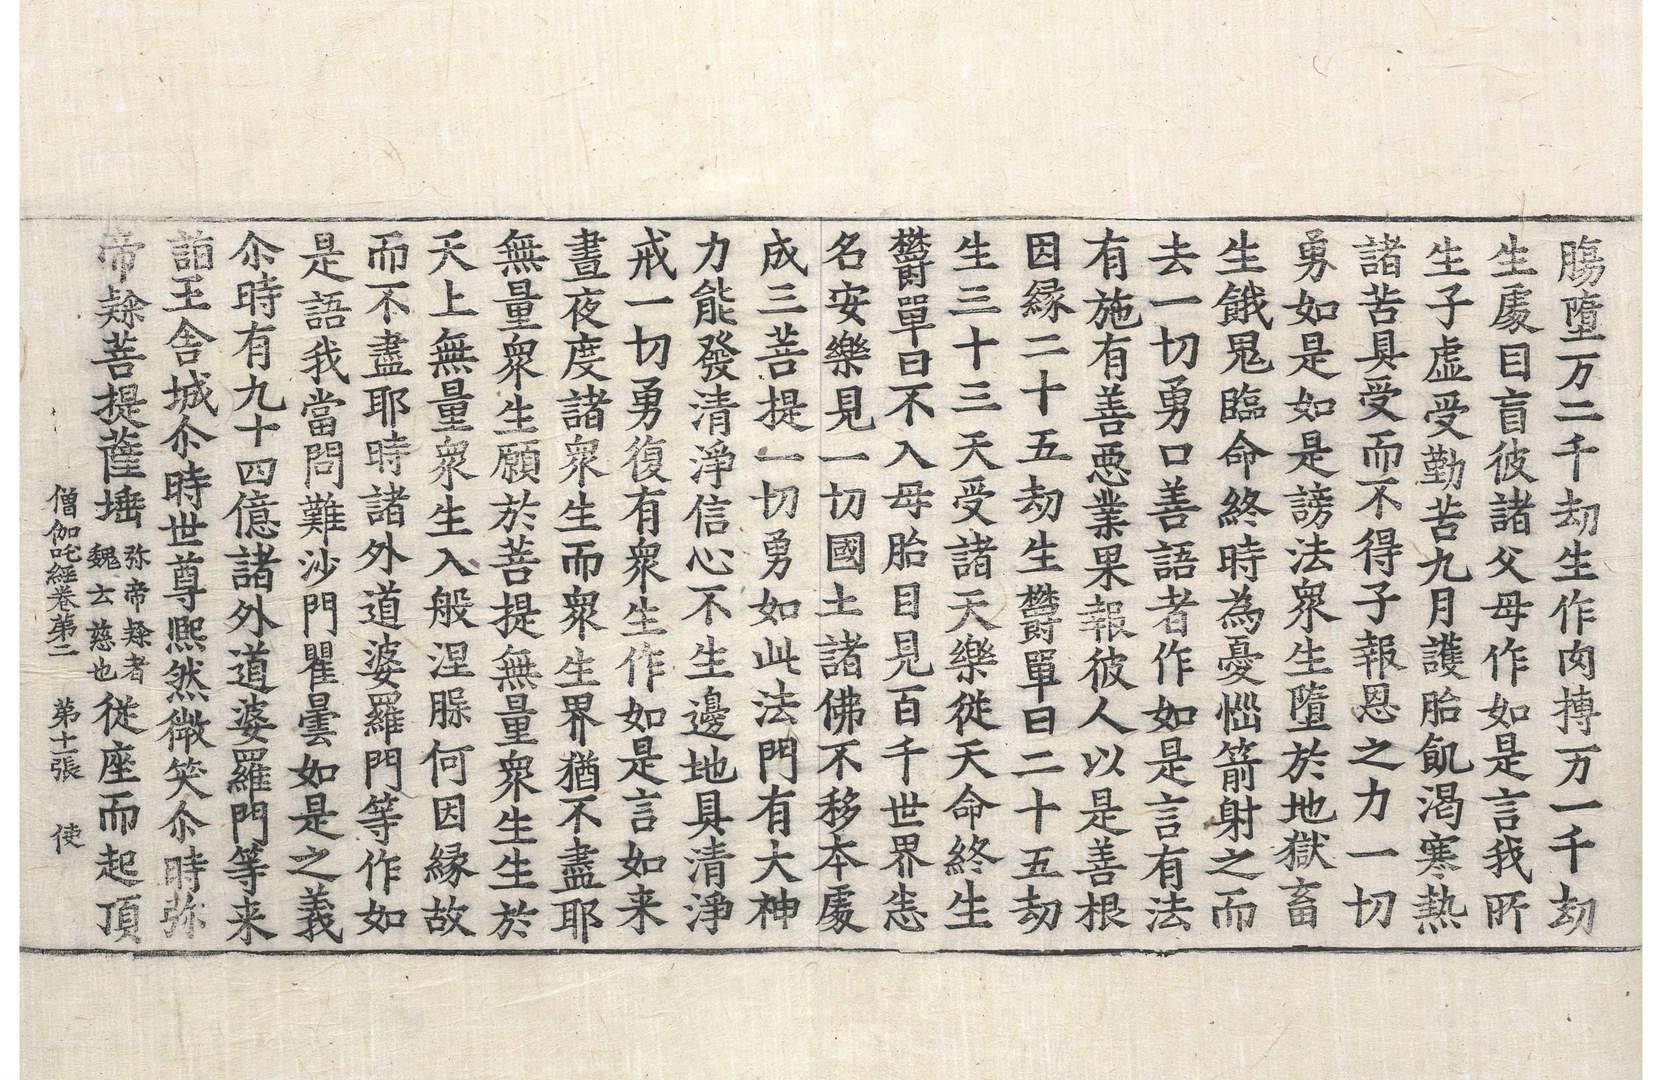 腸墮万二千劫生作肉摶万一千劫
生處目盲彼諸父母作如是言我所
生子虛受勤苦九月護胎飢渴寒熱
諸苦具受而不得子報恩之力一切
勇如是如是謗法衆生墮於地獄畜
生餓鬼臨命終時為憂惱箭射之而
去一切勇口善語者作如是言有法
有施有善惡業果報彼人以是善根
因縁二十五劫生欝單曰二十五劫
生三十三天受諸天樂從天命終生
欝單曰不入母胎目見百千世界悉
名安樂見一切國土諸佛不移本處
成三菩提一切勇如此法門有大神
力能發清淨信心不生邊地具清淨
戒一切勇復有衆生作如是言如来
晝夜度諸衆生而衆生界猶不盡耶
無量衆生願於菩提無量衆生生於
天上無量衆生入般涅槃何因縁故
而不盡耶時諸外道婆羅門等作如
是語我當問難沙門瞿曇如是之義
尒時有九十四億諸外道婆羅門等来
詣王舍城尒時世尊熈然微笑尒時弥
帝隸菩提薩埵弥帝隸者魏言慈也從座而起頂
僧伽吒經卷第二　第十一張　使